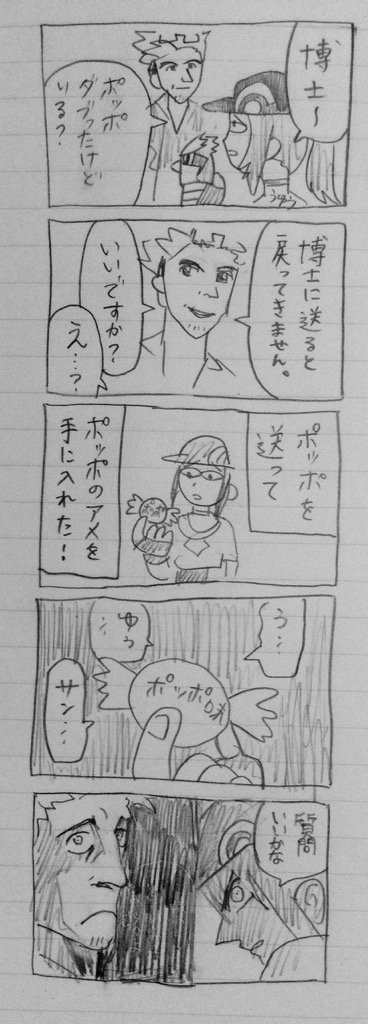 博士〜
ポッポ
ダブったけど
いる?
博士に送ると
戻ってきません。
いいですか?
え…?
ポッポを
送って
ポッポ
ポッポのアメを
手に入れた!
う…
ゆぅ
…
ポッポ味
サン…
質問
いいかな